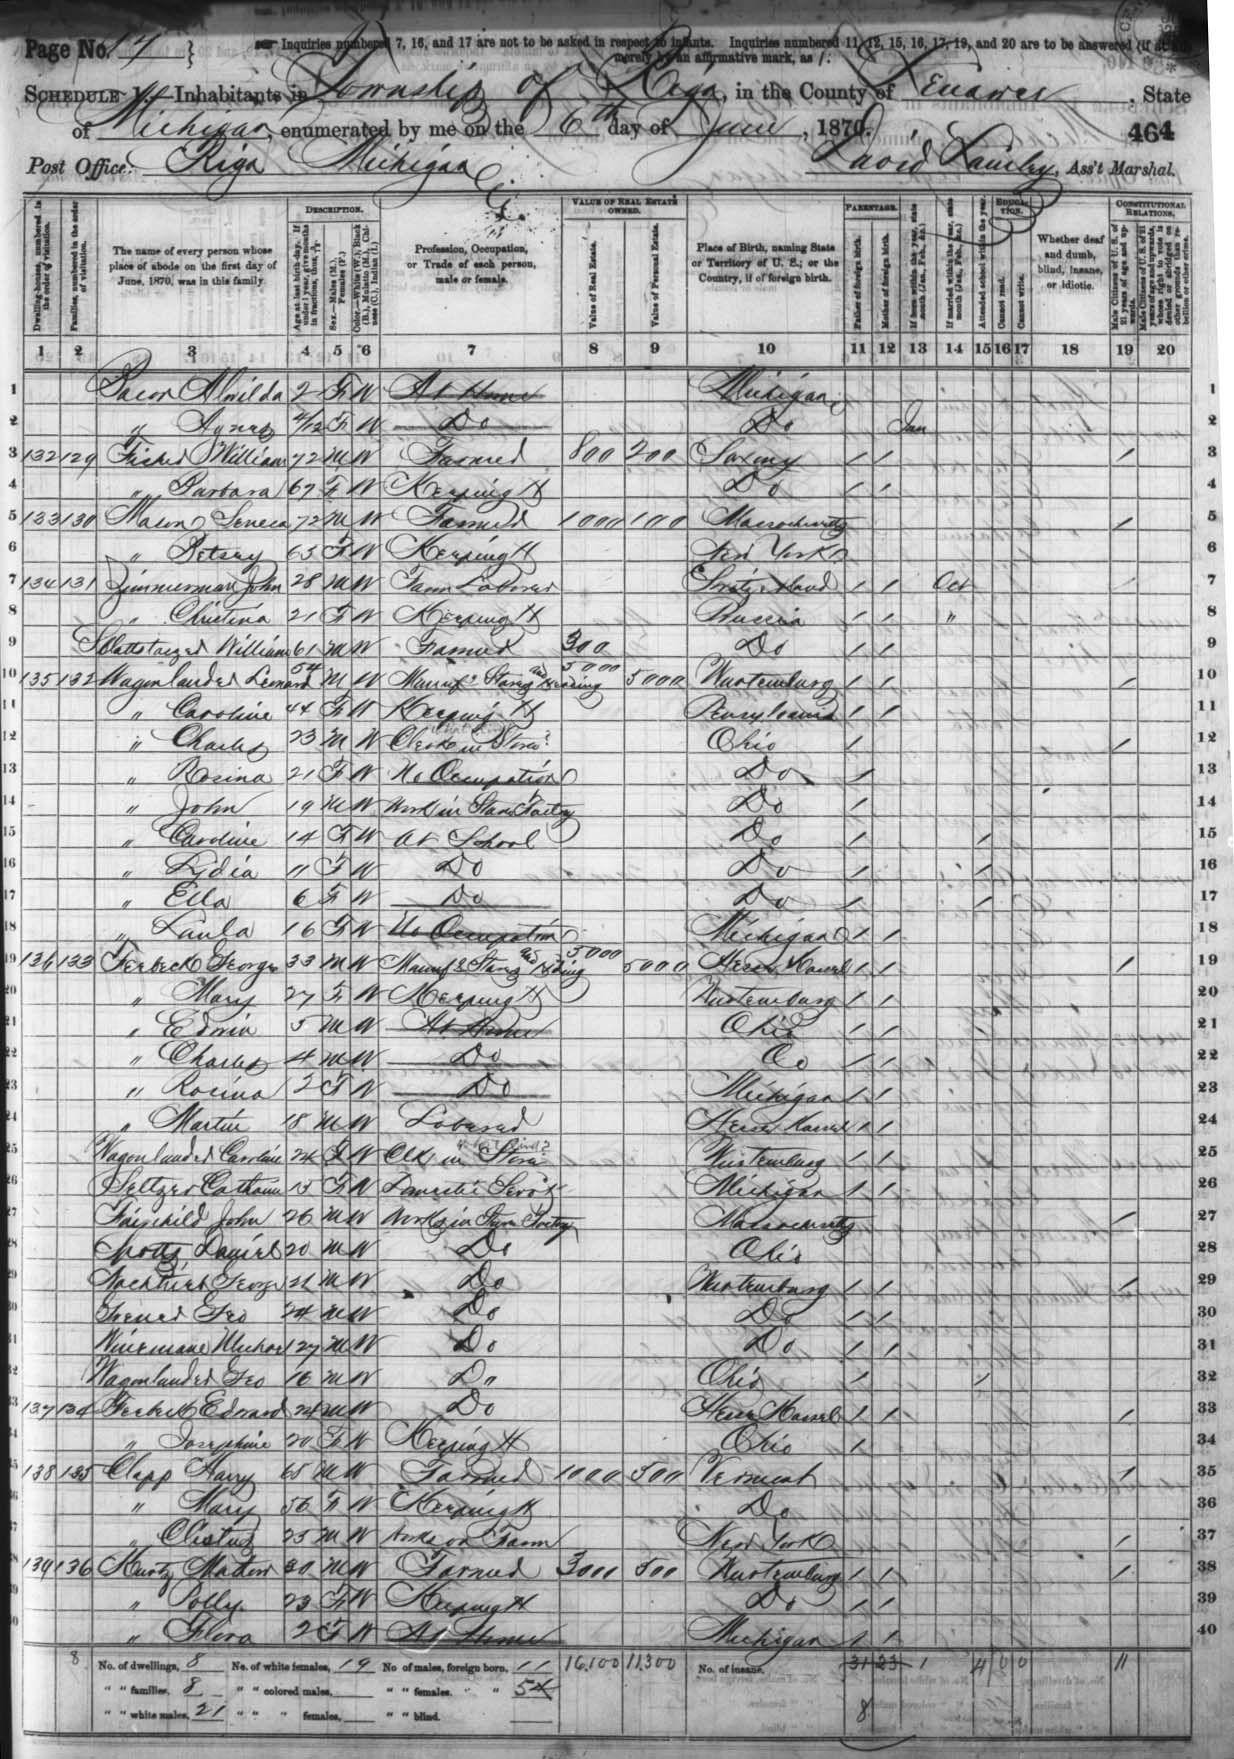 Page No. 17 } Inquiries numbered 7, 16, and 17 are not to be asked in respect to infants. Inquiries numbered 11, 12, 15, 16, 17, 19, and 20 are to be answered (if at all)
merely by an affirmative mark, as /.
SCHEDULE 1.— Inhabitants in Township of Riga, in the County of Lenawee, State
of Michigan, enumerated by me on the 6th day of June, 1870. 464
Post Office: Riga Michigan David , Ass't Marshal.
Dwelling-houses, numbered in the order of visitation.
Families, numbered in the order of visitation.
The name of every person whose place of abode on the first day of June, 1870, was in this family.
DESCRIPTION.
Age at last birth-day. If under 1 year, give months in fractions, thus,
Sex.—Males (M.), Females (F.)
Color.—White (W.), Black (B.), Mulatto (M.), Chinese (C.), Indian (I.)
Profession, Occupation, or Trade of each person, male or female.
VALUE OF REAL ESTATE OWNED.
Value of Real Estate.
Value of Personal Estate.
Place of Birth, naming State or Territory of U. S.; or the Country, if of foreign birth.
PARENTAGE.
Father of foreign birth.
Mother of foreign birth.
If born within the year, state month (Jan., Feb., &c.)
If married within the year, state month (Jan., Feb., &c.)
EDUCATION.
Attended school within the year.
Cannot read.
Cannot write.
Whether deaf and dumb, blind, insane, or idiotic.
CONSTITUTIONAL RELATIONS.
Male Citizens of U. S. of 21 years of age and upwards.
Male Citizens of U. S. of 21 years of age and upwards, whose right to vote is denied or abridged on other grounds than rebellion or other crime.
1 2 3 4 5 6 7 8 9 10 11 12 13 14 15 16 17 18 19 20
1 Bacon Alvilda 2 F W At Home Michigan 1
2 " Agnes 4/12 F W Do Do Jan 2
3 132 129 William 72 M W Farmer 800 200 Saxony / / / 3
4 " Barbara 67 F W Keeping H Do / / 4
5 133 130 Mason Seneca 72 M W Farmer 1000 100 Massachusetts / 5
6 " Betsey 63 F W Keeping H New York 6
7 134 131 Zimmerman John 28 M W Farm Laborer Switzerland / / Oct / 7
8 " Christina 21 F W Keeping H Prussia / / " 8
9 William 61 M W Farmer 300 Do / / 9
10 135 132 Wagonlander Leonard 54 M W Manuf Staves and Heading 5000 5000 Wurtemburg / / / 10
11 " Caroline 44 F W Keeping H Pennsylvania / / 11
12 " Charles 23 M W Clerk in Store What kind? Ohio / / 12
13 " Rosina 21 F W No Occupation Do / 13
14 " John 19 M W Work in Stave Factory Do / 14
15 " Caroline 14 F W At School Do / / 15
16 " Lydia 11 F W Do Do / / 16
17 " Ella 6 F W Do Do / / 17
18 " Laula 16 F W No Occupation Michigan / / 18
19 136 133 Ferbeck George 33 M W Manuf Staves and Hding 5000 5000 Hesse Kassel / / / 19
20 " Mary 27 F W Keeping H Wurtemburg / / 20
21 " Edwin 5 M W At Home Ohio / / 21
22 " Charles 4 M W Do Do / / 22
23 " Rosina 2 F W Do Michigan / / 23
24 " Martin 18 M W Laborer Hesse Kassel / / 24
25 Wagonlander Caroline 24 F W Clk in Store what kind? Wurtemburg / / 25
26 Seltzer Catharine 13 F W Domestic Servt Michigan / / 26
27 Fairchild John 26 M W Works in Stave Factory Massachusetts / 27
28 Spotts Daniel 20 M W Do Ohio 28
29 George 21 M W Do Wurtemburg / / / 29
30 Geo 24 M W Do Do / / 30
31 27 M W Do Do / / 31
32 Wagonlander Geo 16 M W Do Ohio / / 32
33 137 134 Ferbeck Edward 24 M W Do Hesse Kassel / / / 33
34 " Josephine 20 F W Keeping H Ohio / 34
35 138 135 Clapp Harry 65 M W Farmer 1000 300 Vermont / 35
36 " Mary 56 F W Keeping H Do 36
37 " 23 M W Works on Farm New York / 37
38 139 136 Kurtz 30 M W Farmer 3000 500 Wurtemburg / / / 38
39 " Polly 23 F W Keeping H Do / / 39
40 " Flora 2 F W At Home Michigan / / 40
8 No. of dwellings, 8 No. of white females, 19 No of males, foreign born, 11 16,100 11,300 No. of insane, 31 23 1 4 0 0 11
" " families, 8 " " colored males, " " females, " " 54
" " white males, 21 " " " females, " " blind. 8